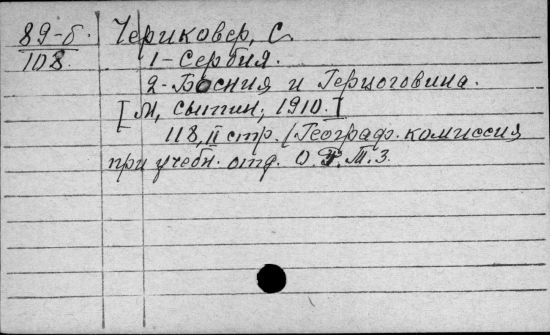 89-б. Чериковер, С.
108. 1-Сербия.
2-Босния и Герцоговина.
[М, Сытин, 1910.]
118, II стр. (Географ. комиссия
при учебн. отд. О. Р. Т. З.